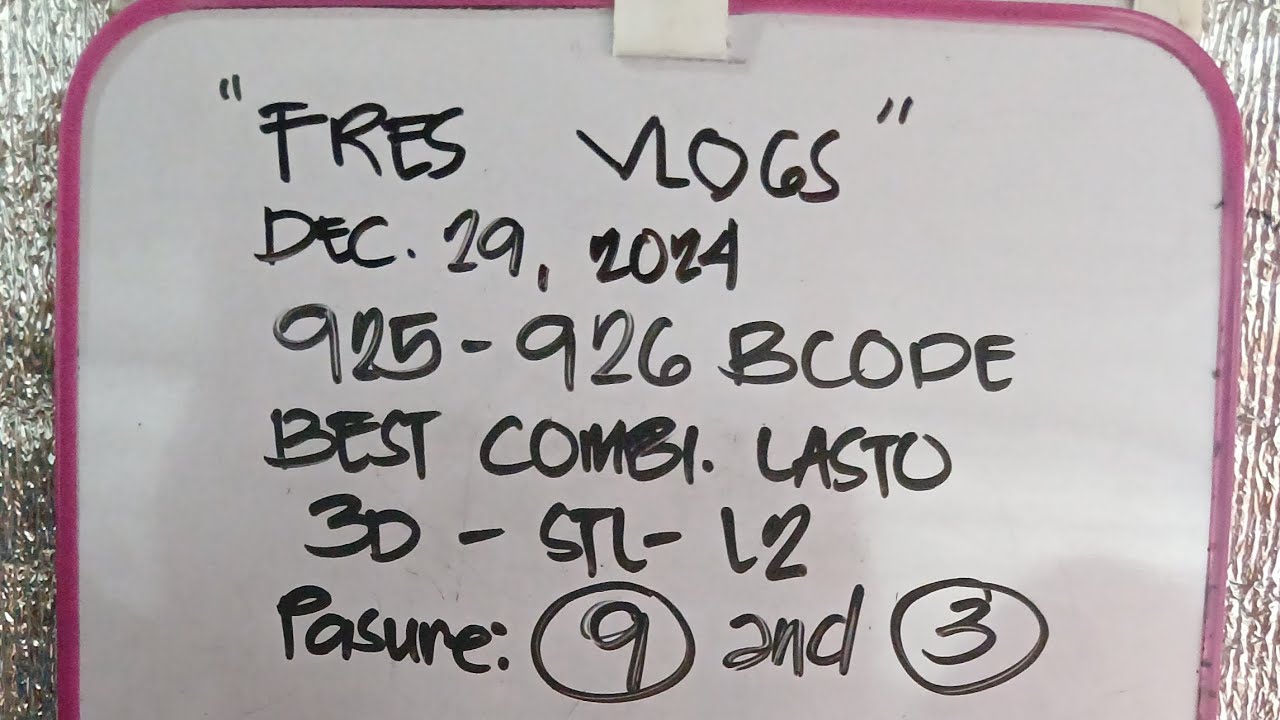 "FRES VLOGS"
DEC. 29, 2024
925-926 BCODE
BEST COMBI. LASTO
3D - STL - L2
Pasure: 9 and 3